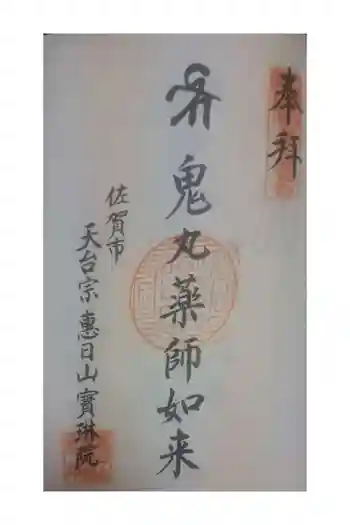 奉拝
鬼丸薬師如来
佐賀市
天台宗 惠日山寳琳院